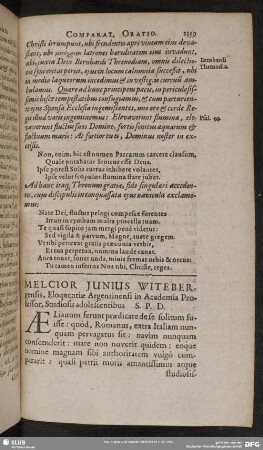 COMPARAT. ORATIO. 1359
Christi irrumpunt, ubi frendentes apri vineam eius deva-
stant, ubi latrones hæreditatem eius invadunt,
ubi, juxta Devi Bernhardi Threnodiam, omnis
Bernhardi
in locum calumnia successit, ubi
in medio laqueorum incedimus & in vestigiis curvis am-
bulamus. Quare ad hunc principem pacis,
simis hisce tempestatibus confugiamus, & cum
Ecclesia ingemiscentes, uno ore & corde Re-
gii illud vatis ingeminemus: Elevaverunt flumina, ele-
Psal. 93.
vaverunt fluctus suos Domine, fortes sonitus aquarum &
fluctuum maris: At fortior tu es, Dominus noster in ex-
celsis.
Non, enim, hic est numen Parcarum carcere clausum,
Quale putabatur Stoicus esse Deus.
Ipse potest Solis cursus inhibere volantes,
Ipse velut scopulos flumina stare jubet.
Ad hanc igitur Thronum gratiæ, fide singulari acceden-
tes, cum discipulis in conquassata que navicula exclamo-
mus:
Nate Dei, fluctus pelagi compesce furentes
Irruit in cymbam multa procella tuam.
Te quasi sopito jam mergi penè videtur:
Sed vigila & parvum, Magne, tuere gregem.
Veribi pereat gratia præconia verbis,
Eruta perpetua, nomina laude canat.
Aura tonet, sonet unda, minis fremat orbis & orcus:
Tu tamen infertos Nos tibi, Christe, reges.
MELCIOR JUNIUS WITEBER-
gensis, Eloquentiæ Argentinensis in Academia Pro-
fessor, Studiosis adolescentibus S. P. D.
ÆLianum ferunt prædicare de se solitum fu-
isse: quod, Romanus, extra Italiam nun-
quam pervagatus sit: navim nunquam
conscenderit: mare non noverit quidem: eoque
nomine magnam sibi authoritatem vulgò com-
pararit: quasi patrii moris amantissimus atque
studiosis-
SLUB